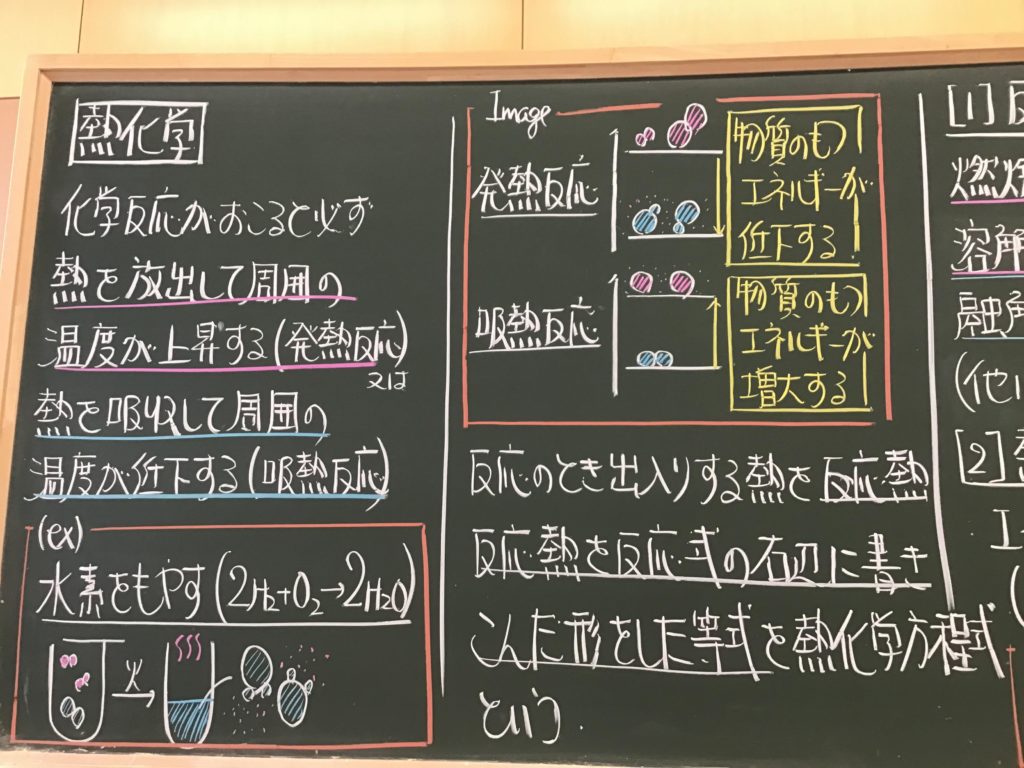 熱化学
化学反応がおこると必ず
熱を放出して周囲の
温度が上昇する(発熱反応)
又は
熱を吸収して周囲の
温度が低下する(吸熱反応)
(ex)
水素をもやす(2H2+O2→2H2O)
火
Image
発熱反応
物質のもつ
エネルギーが
低下する
吸熱反応
物質のもつ
エネルギーが
増大する
反応のとき出入りする熱を反応熱
反応熱を反応式の右辺に書き
こんだ形をした等式を熱化学方程式
という.
[1]反
燃焼
溶解
融解
(他に
[2]
エ